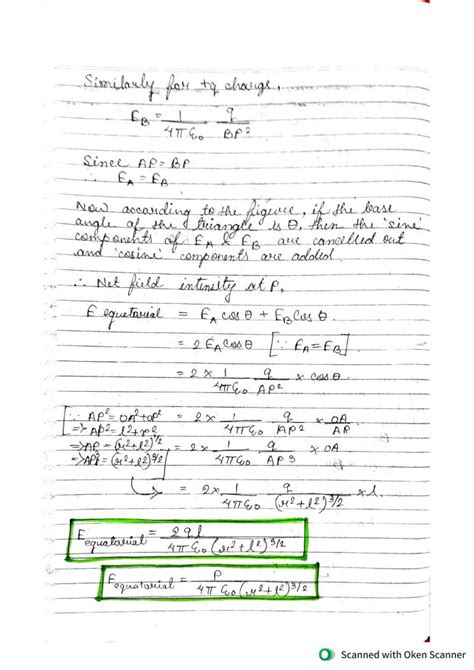 Similarly for +q charge,
E_B = 1/4πε₀ q/BP²
Since AP = BP
∴ E_A = E_B
Now according to the figure, if the base
angle of the triangle is θ, then the 'sine'
components of E_A & E_B are cancelled out
and 'cosine' components are added.
∴ Net field intensity at P,
E equetarial = E_A cos θ + E_B cos θ
= 2 E_A cos θ [∵ E_A = E_B]
= 2 × 1/4πε₀ q/AP² × cos θ
∵ AP² = OA² + OP² = 2 × 1/4πε₀ q/AP² × OA/AP
=> AP² = l² + r²
=> AP = (r² + l²)^1/2 = 2 × 1/4πε₀ q/AP³ × OA
=> AP³ = (r² + l²)^3/2
= 2 × 1/4πε₀ q/(r² + l²)^3/2 × l
E equatarial = 2ql/4πε₀ (r² + l²)^3/2
E equatarial = P/4πε₀ (r² + l²)^3/2
Scanned with Oken Scanner